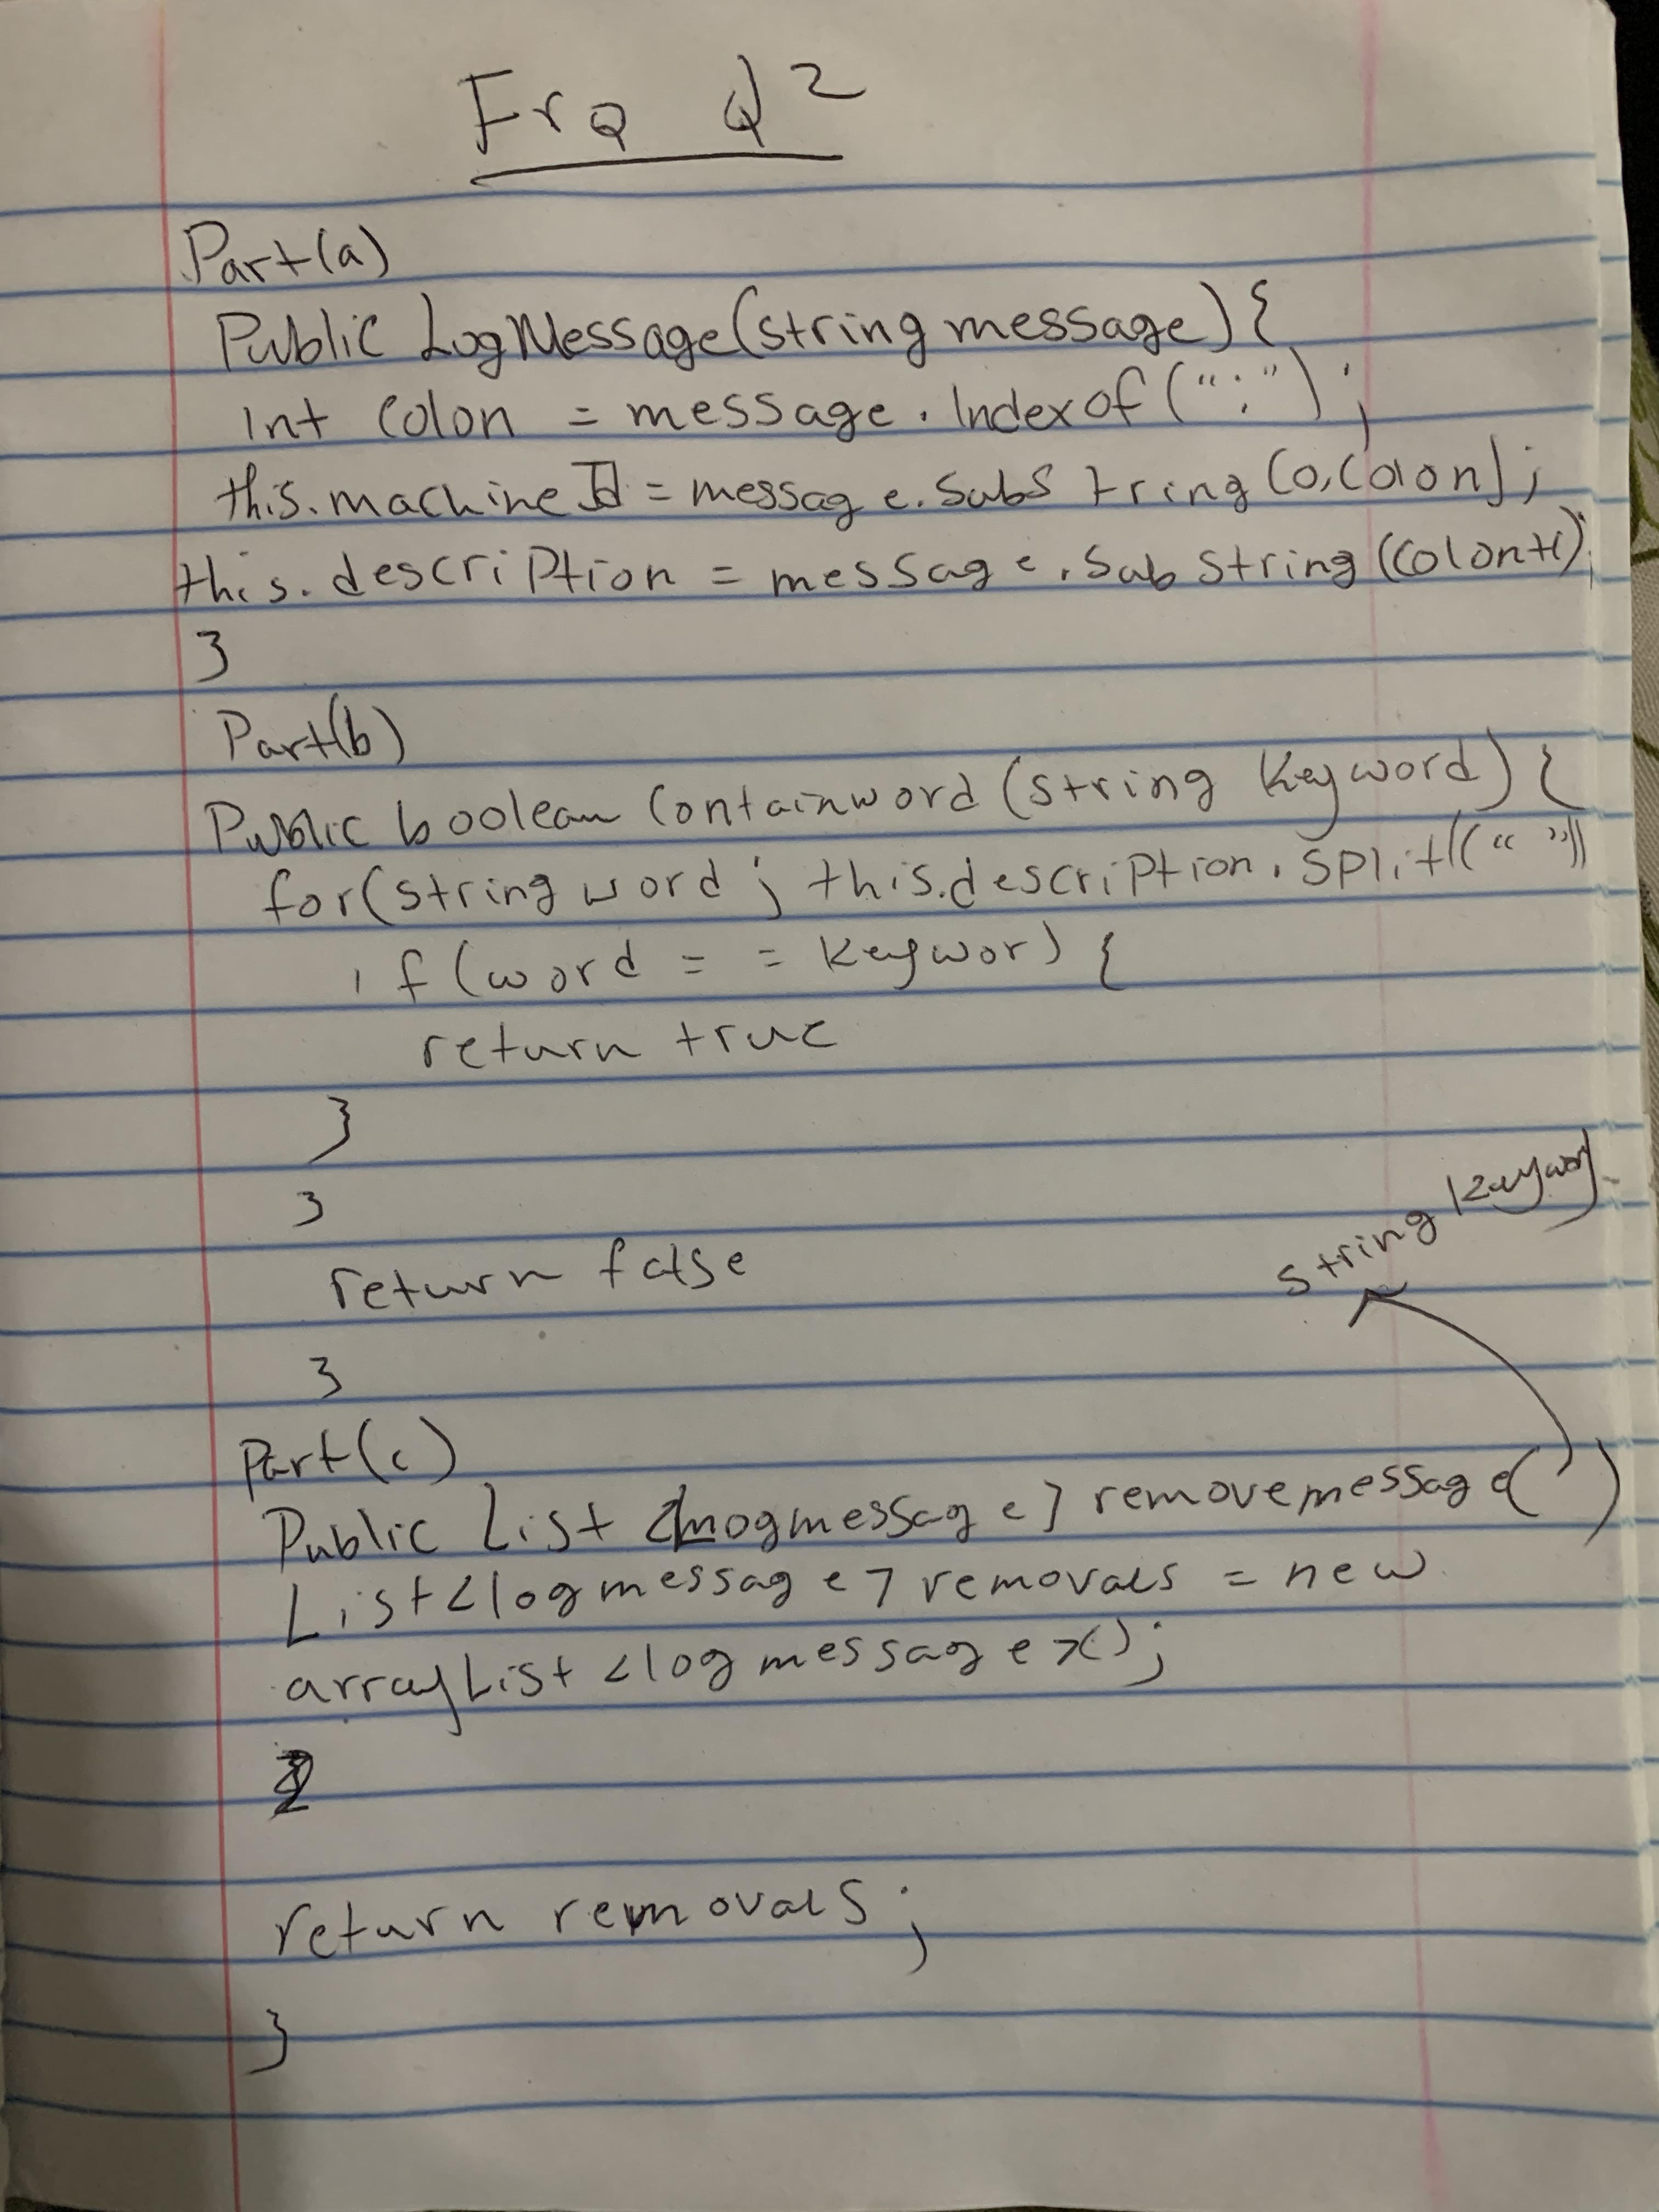 FrQ Q2
Part(a)
Public LogMessage(string message){
int Colon = message.Indexof(":");
this.machineId = message.substring(0,colon);
this.description = message.substring(Colon+1);
}
Part(b)
Public boolean Containword(string keyword){
for(string word ; this.description.split(" "))
if(word == keywor){
return true
}
}
return false
}
string keywor
Part(c)
Public List <logmessage> removemessage( )
List<logmessage> removals = new
arrayList<logmessage>();
return removals;
}